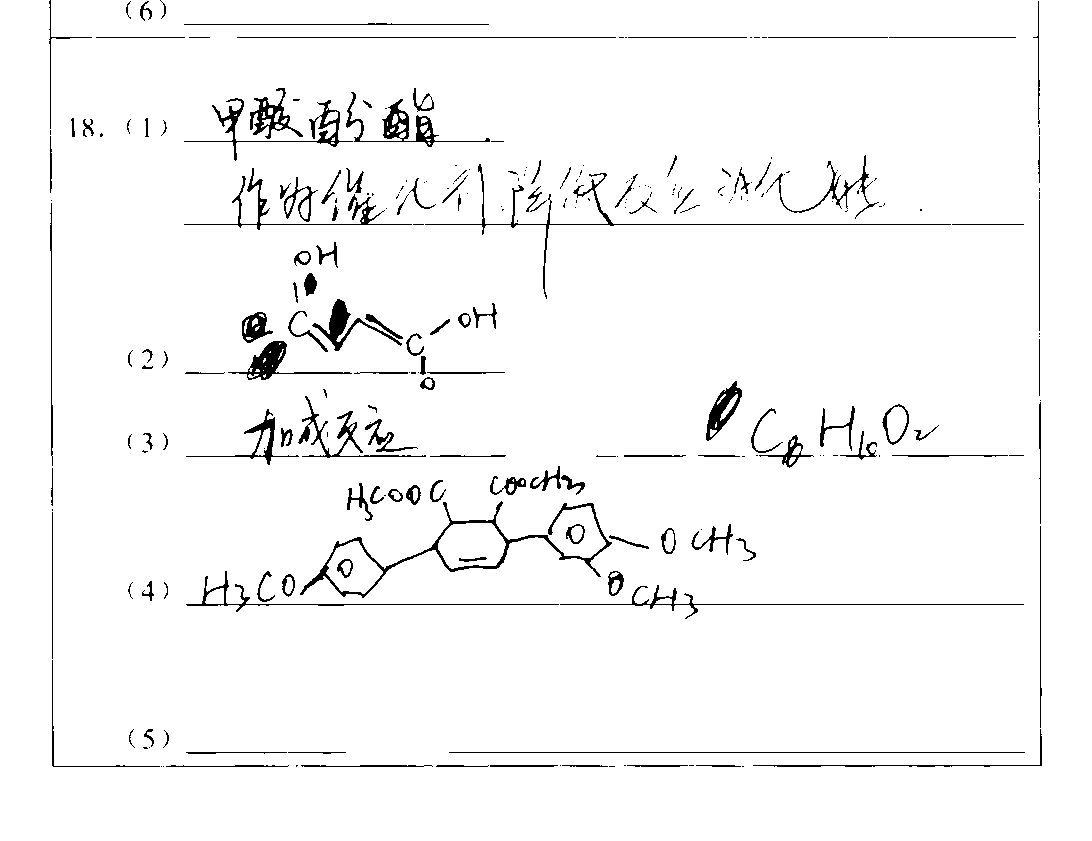 (6)
18. (1) 甲酸酚酯.
作为催化剂,降低反应活化能.
OH
C C OH
(2) O
(3) 加成反应 C8H10O2
H3COOC COOCH3
OCH3
(4) H3CO OCH3
(5)